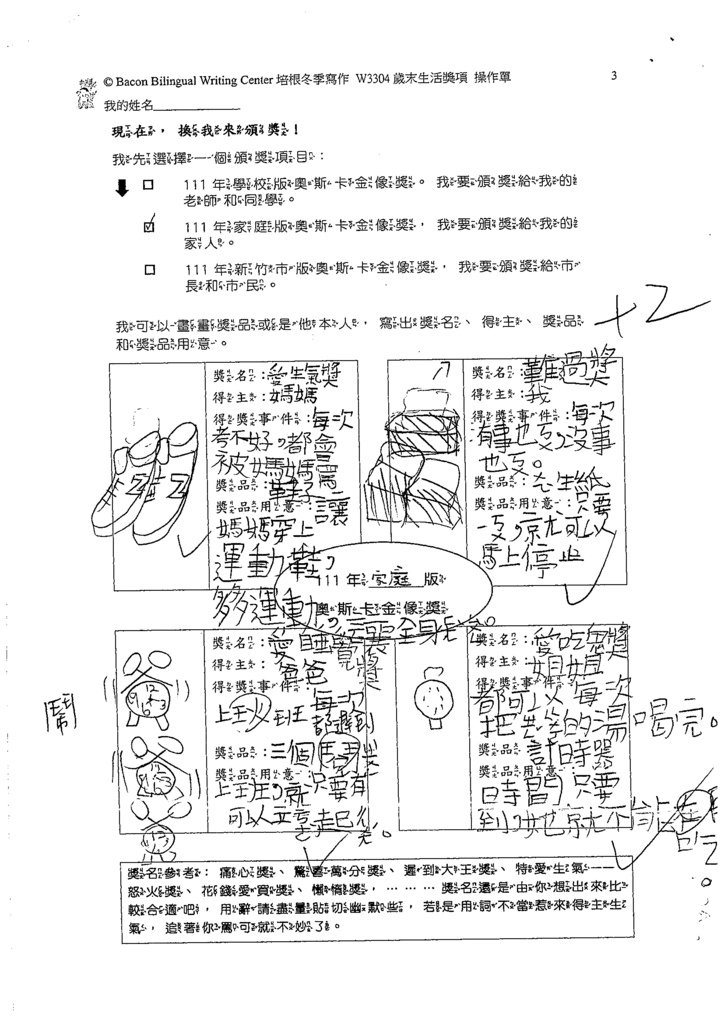 © Bacon Bilingual Writing Center 培根冬季寫作 W3304 歲末生活獎項 操作單
3
我的姓名
現在, 換我來頒獎!
我先選擇一個頒獎項目:
111 年學校版奧斯卡金像獎。 我要頒獎給我的
老師和同學。
111 年家庭版奧斯卡金像獎, 我要頒獎給我的
家人。
111 年新竹市版奧斯卡金像獎, 我要頒獎給市
長和市民。
+2
我可以畫畫獎品或是他本人, 寫出獎名、得主、獎品
和獎品用意。
獎名:愛生氣獎
得主:媽媽
得獎事件:每次
考不好,都會
被媽媽罵
獎品:鞋子
獎品用意:讓
媽媽穿上
運動鞋,
多運動,
獎名:難過獎
得主:我
得獎事件:每次
有事也哭,沒事
也哭。
獎品:衛生紙
獎品用意:只要
一哭,就可以
馬上停止
111 年 家庭 版
奧斯卡金像獎
獎名:愛睡覺獎
得主:爸爸
得獎事件:每次
上班
獎品:三個鬧
獎品用意:只要有
可以立
鬧
獎名:愛吃鬼獎
得主:姐姐
得獎事件:每次
都可以
把 的湯喝完。
獎品:計時器
獎品用意:只要
時間
到,她就不能
吃。
獎名參考: 痛心獎、驚喜萬分獎、遲到大王獎、特愛生氣——
怒火獎、花錢愛買獎、懶惰獎, ……… 獎名還是由你想出來比
較合適吧, 用辭請盡量貼切幽默些, 若是用詞不當惹來得主生
氣, 追著你罵可就不妙了。